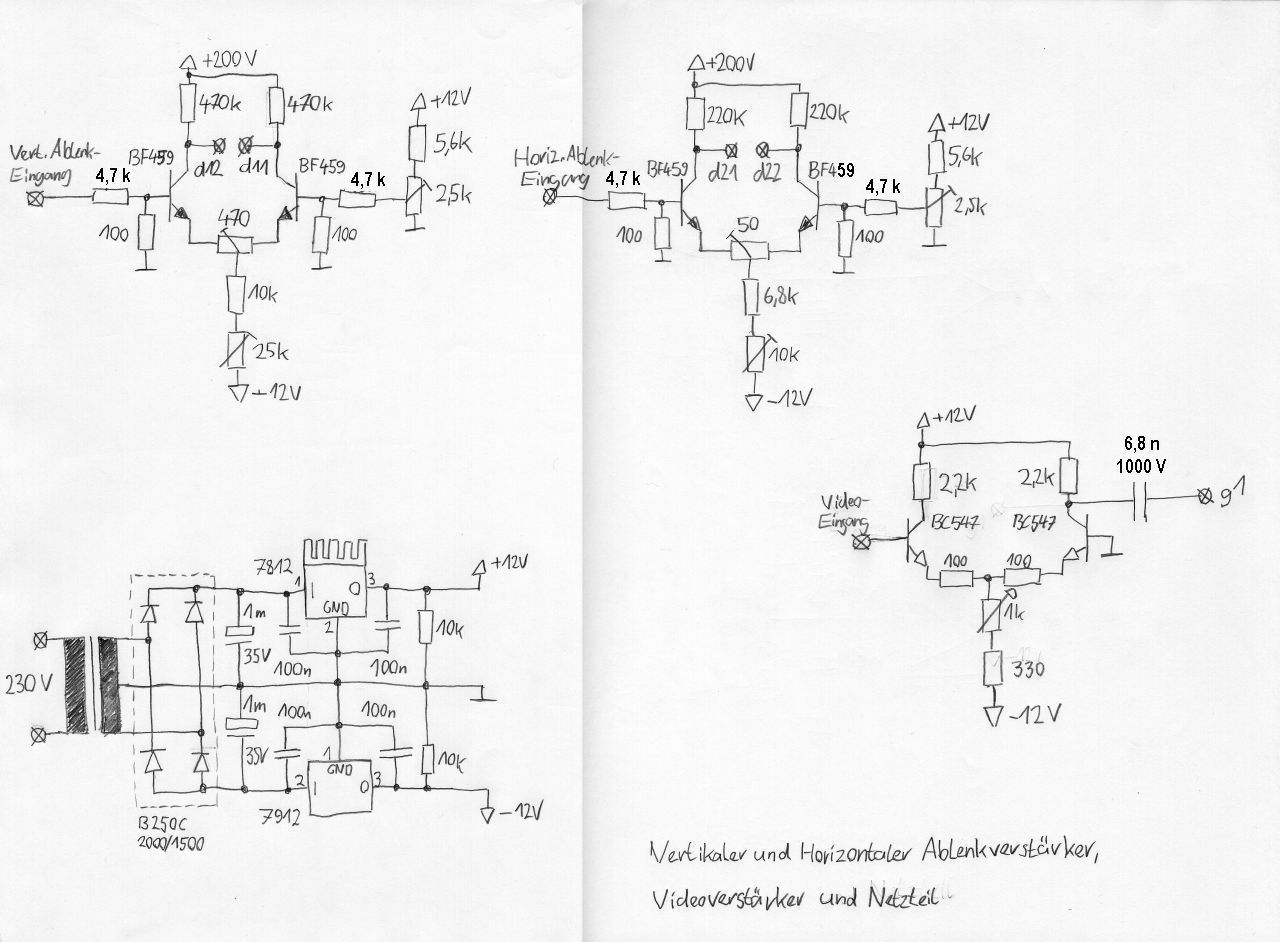 +200V
470k
470k
+12V
5,6k
Vert. Ablenk-
Eingang
BF459
d12
d11
BF459
4,7 k
4,7 k
2,5k
100
470
100
10k
25k
-12V
+200V
220k
220k
+12V
5,6k
Horiz. Ablenk-
Eingang
BF459
d21
d22
BF459
4,7 k
4,7 k
2,5k
100
50
100
6,8k
10k
-12V
+12V
6,8 n
1000 V
2,2k
2,2k
g1
Video-
Eingang
BC547
BC547
100
100
1k
330
-12V
7812
+12V
1
3
I
O
GND
2
1m
35V
100n
100n
10k
230 V
1m
35V
100n
100n
10k
1
GND
2
3
I
O
7912
-12V
B250C
2000/1500
Vertikaler und Horizontaler Ablenkverstärker,
Videoverstärker und Netzteil